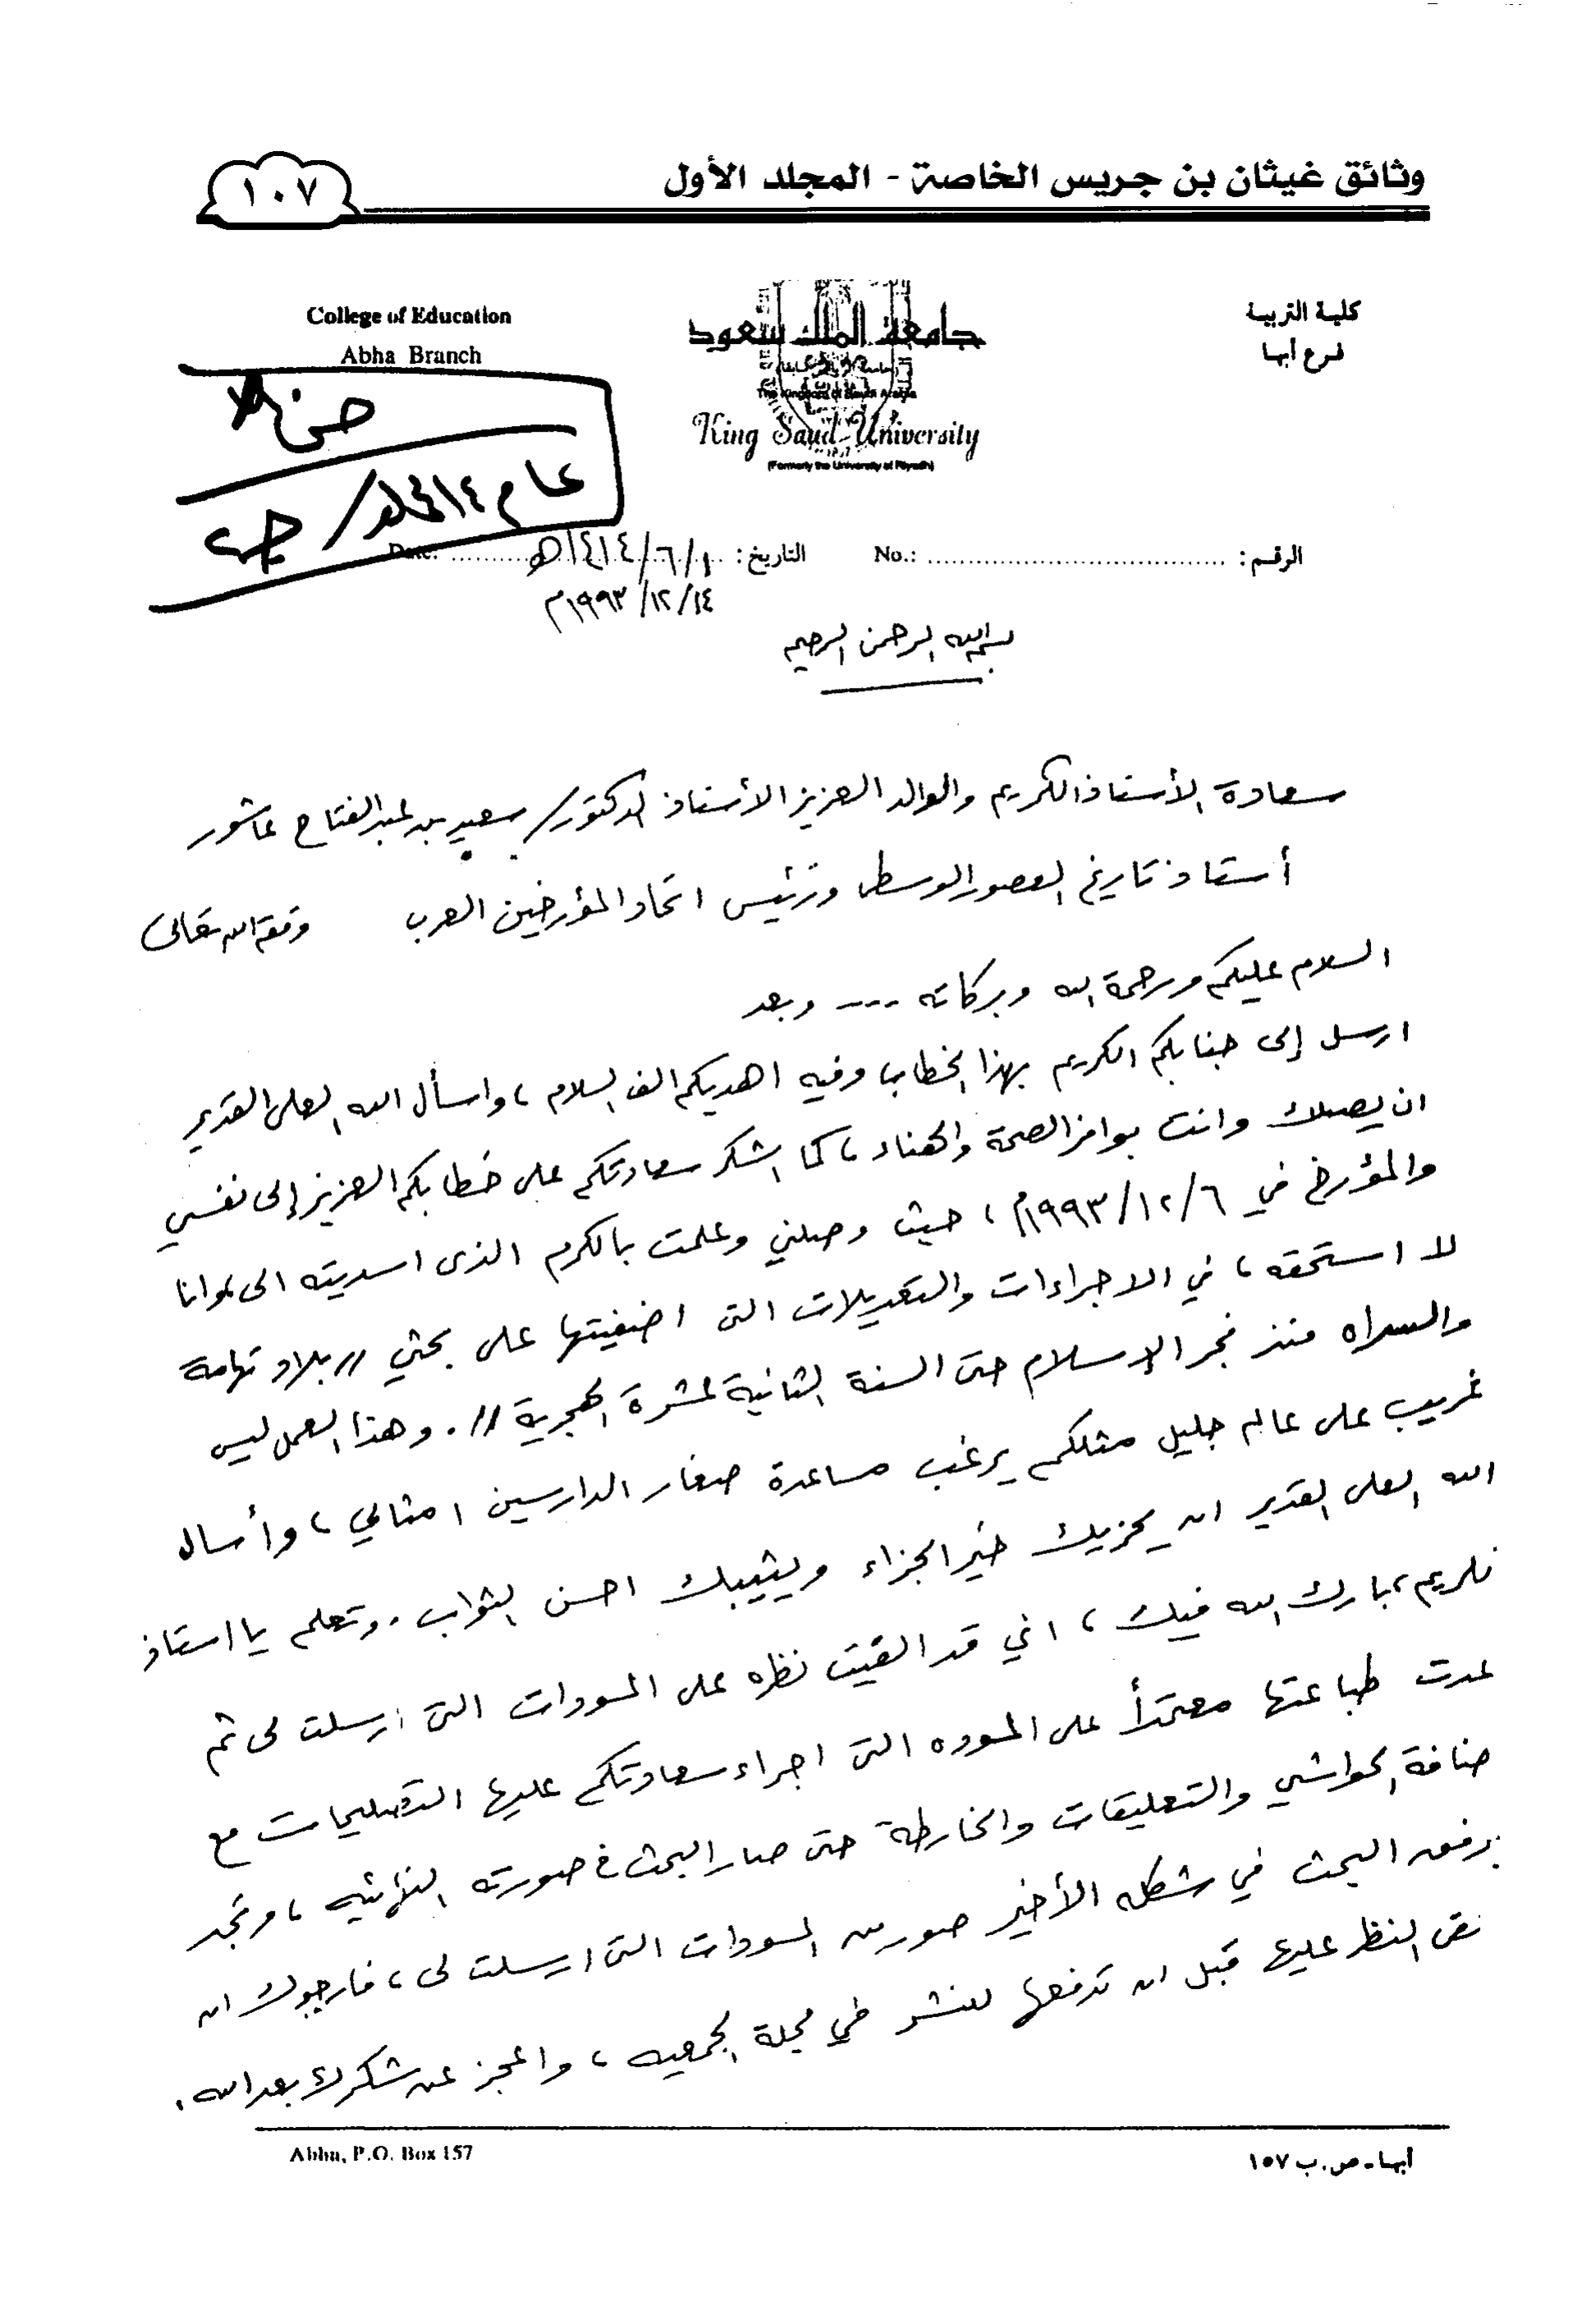 وثائق غيثان بن جريس الخاصة - المجلد الأول
١٠٧
كلية التربية
فرع أبها
جامعة الملك سعود
King Saud University
(Formerly the University of Riyadh)
College of Education
Abha Branch
عام ١٤ المجلد/ جـ٢
الرقم: No.:
التاريخ: ١٤١٤/٦/١هـ Date:
١٩٩٣/١٢/١٤م
بسم الله الرحمن الرحيم
سعادة الأستاذ الكريم والوالد العزيز الأستاذ الدكتور/ سعيد بن عبدالفتاح عاشور
أستاذ تاريخ العصور الوسطى ورئيس اتحاد المؤرخين العرب وفقه الله تعالى
السلام عليكم ورحمة الله وبركاته --- وبعد
ارسل إلى جنابكم الكريم بهذا الخطاب وفيه اهديكم الف السلام، واسأل الله العلى القدير
ان يصلك وانت بوافر الصحة والهناء، كما اشكر سعادتكم على خطابكم العزيز إلى نفسي
والمؤرخ في ١٩٩٣/١٢/٦م، حيث وصلني وعلمت بالكرم الذى اسديته الى، وانا
لا استحقه، في الاجراءات والتعديلات التى اضفيتها على بحثي "بلاد تهامة
والسراه منذ فجر الإسلام حتى السنة الثانية عشرة الهجرية". وهذا العمل ليس
غريب على عالم جليل مثلكم يرغب مساعدة صغار الدارسين امثالي، وأسال
الله العلى القدير ان يجزيك خير الجزاء ويثيبك احسن الثواب. وتعلم يا استاذ
كريم، بارك الله فيك، اني قد القيت نظره على المسودات التى ارسلت لى ثم
عدت طباعتها معتمداً على المسوده التى اجراء سعادتكم عليها التصليحات مع
ضافة الحواشي والتعليقات والخارطة حتى صار البحث في صورته النهائيه، وتجد
برفقه البحث في شكله الأخير صور من المسودات التى ارسلت لى، فارجوك ان
النظر عليها قبل ان تدفعها للنشر في مجلة الجمعيه، واعجز عن شكرك بعد الله.
أبها - ص.ب ١٥٧
Abha, P.O. Box 157